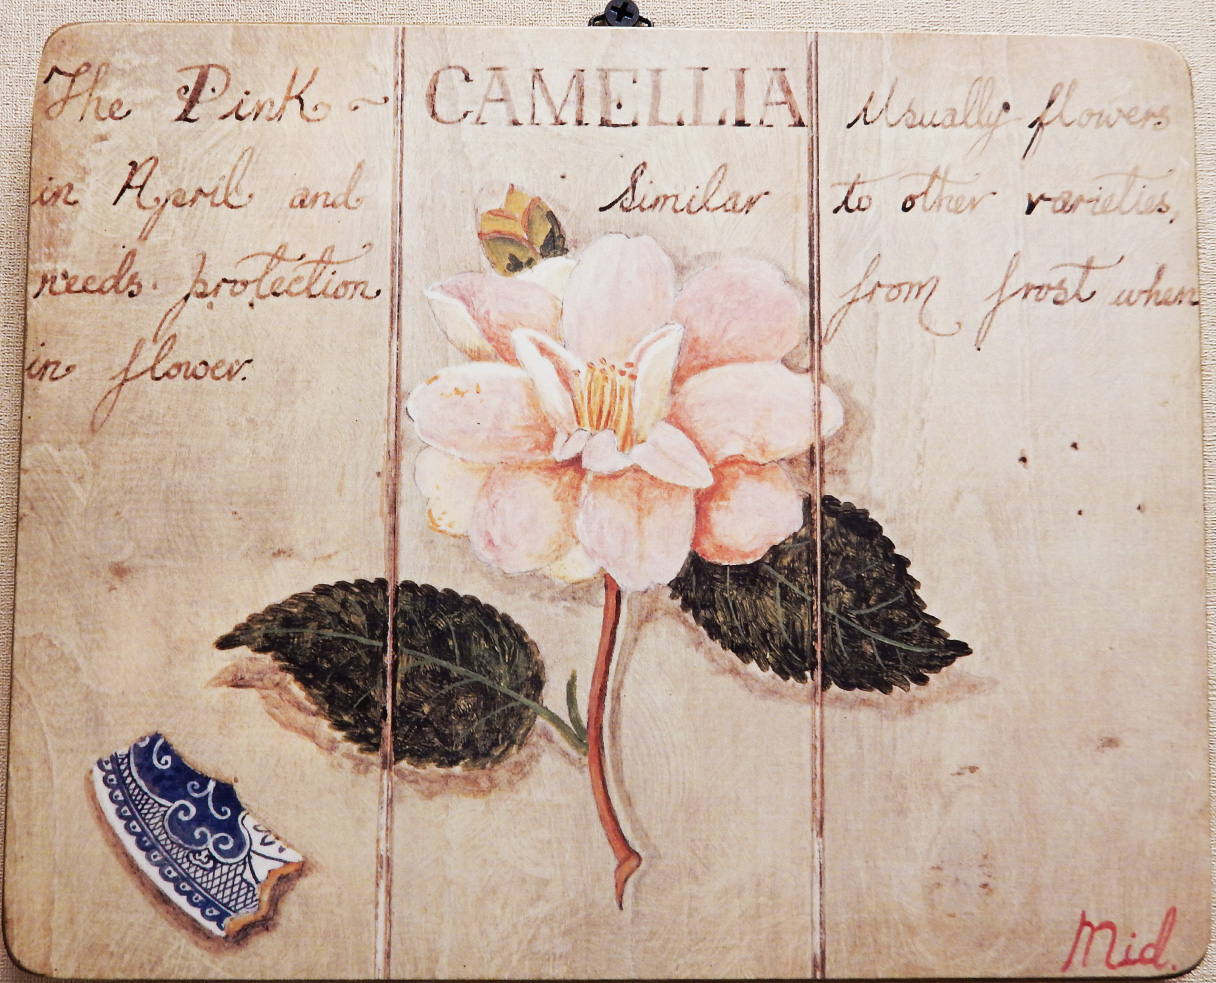 The Pink ~ CAMELLIA Usually flowers
in April and Similar to other varieties,
needs protection from frost when
in flower.
Mid.